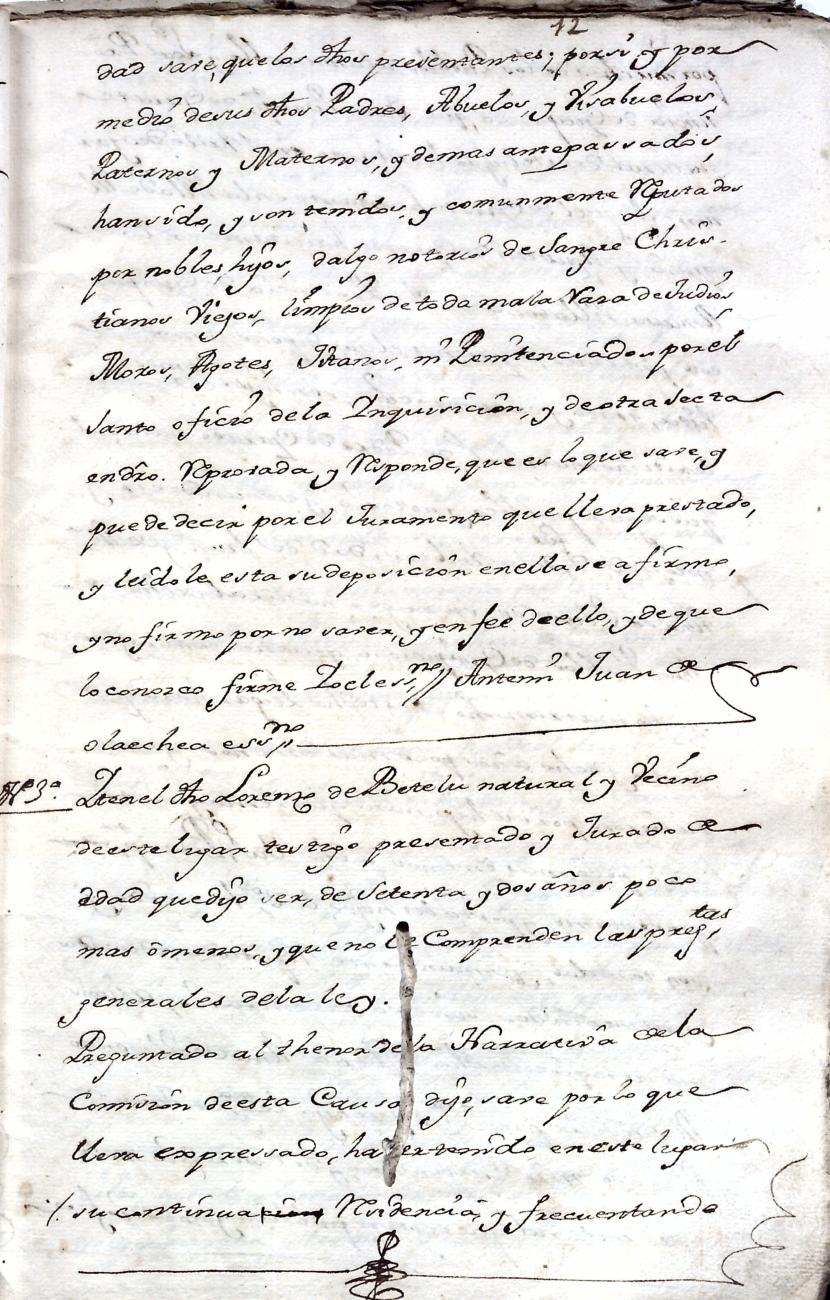 12
dad save, que los dhos presentantes; por si y por
medio de sus dhos Padres, Abuelos, y Visabuelos,
Paternos y Maternos, y demas antepassados,
han sido, y son tenidos, y comunmente Reputados
por nobles, hijos, dalgo notorios de Sangre Chris-
tianos Viejos, limpios de toda mala Raza de Judios,
Moros, Agotes, Jitanos, ni Penitenciados por el
Santo oficio de la Inquisicion, y de otra Secta
en dro. Reprovada, y Responde, que es lo que save, y
puede decir por el Juramento que lleva prestado,
y leidole esta su deposicion en ella se afirmo,
y no firmo por no saver, y en fee de ello, y de que
lo conozco firme Yo el essno// Antemi Juan de
olaechea essno
To 3o. Iten el dho Lorenzo de Betelu natural y Vecino
de este lugar testigo presentado y Jurado de
edad que dijo ser, de Setenta y dos años poco
mas ô menos, y que no le Comprenden las pregtas
generales de la ley.
Preguntado al thenor de la Narrativa de la
Comision de esta Causa dijo, save por lo que
lleva expressado, haver tenido en este lugar
/. su continua Residencia, y frecuentando